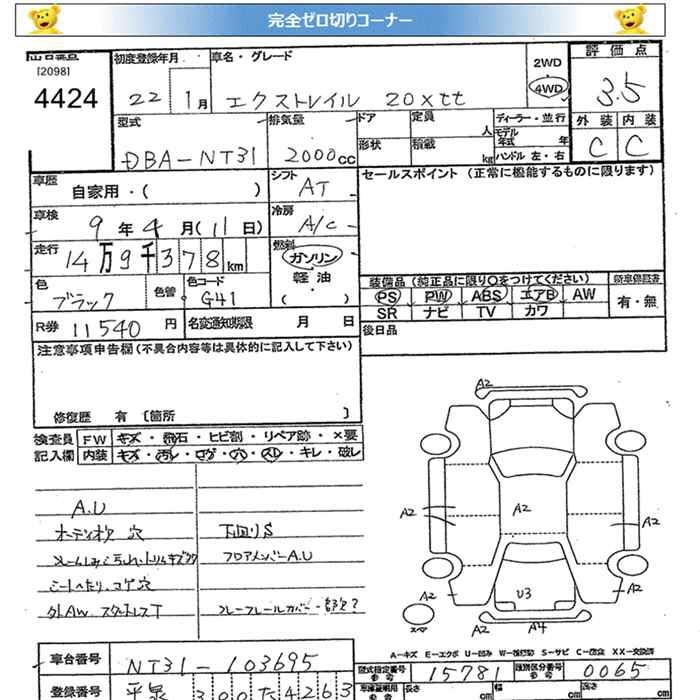 完全ゼロ切りコーナー
出品番号 [2098] 4424
初度登録年月 22 1月
車名・グレード エクストレイル 20xtt
2WD 4WD
評価点 3.5
型式 DBA-NT31
排気量 2000cc
ドア 定員 人
形状 積載 kg
ディーラー・並行
モデル年式 年
ハンドル 左・右
外装 内装
C C
車歴 自家用・( )
シフト AT
セールスポイント (正常に機能するものに限ります)
車検 9年4月(11日)
冷房 A/C
走行 14万9千378km
燃料 ガソリン 軽油・( )
色 ブラック 色替 色コード G41
装備品(純正品に限り○をつけてください) 新車保証書
PS PW ABS エアB AW 有・無
SR ナビ TV カワ
R券 11540円 名変通知期限 月 日
後日品
注意事項申告欄(不具合内容等は具体的に記入して下さい)
修復歴 有〔箇所 〕
検査員 FW キズ・飛石・ヒビ割・リペア跡・×要
記入欄 内装 キズ・汚レ・コゲ・穴・スレ・キレ・破レ
A.U
オーディオク 穴 下回りS
フロアメンバーA.U
シートへたり、コゲ穴
外AW スタットレスT
A2
A2
A2
A2
A2
U3
A2
A2
A4
スペア
A-キズ E-エクボ U-凹み W-補修跡 S-サビ C-腐食 XX-交換済
車台番号 NT31-103695
型式指定番号 参考 15781 類別区分番号 参考 0065
登録番号
長さ cm 幅 cm 高さ cm